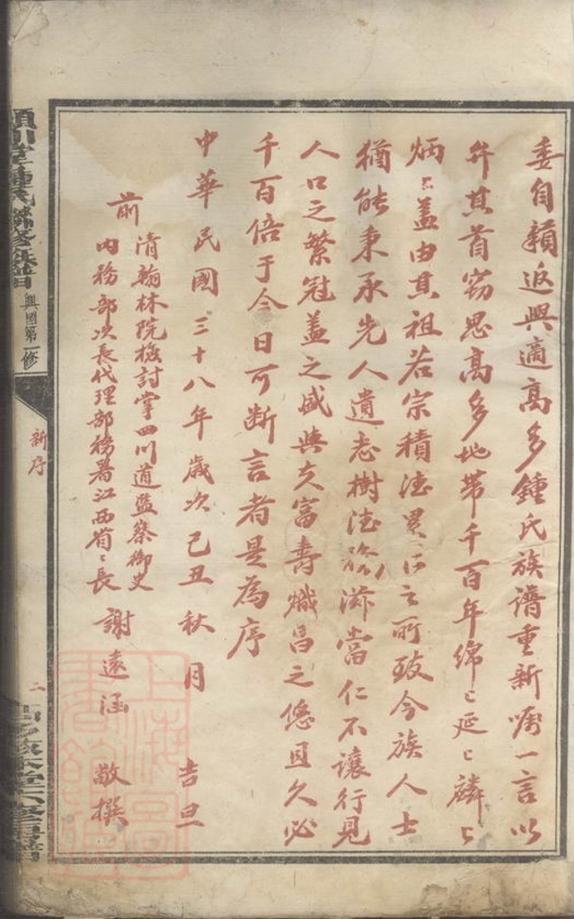 委自赣返興適高多鍾氏族譜重新嘱一言以
弁其首窃思高多地带千百年綿〻延〻麟〻
炳〻蓋由其祖若宗積德累仁之所致今族人士
猶能秉承先人遺志樹德務滋當仁不讓行見
人口之繁冠盖之盛與夫富壽熾昌之優且久必
千百倍于今日可断言者是為序
中華民國三十八年歲次己丑秋月 吉旦
前
清翰林院檢討掌四川道監察御史
内務部次長代理部務署江西省〻長
謝遠涵 敬撰
潁川堂鍾氏聯修族譜
興國第一修
新序
二
上海圖書館藏